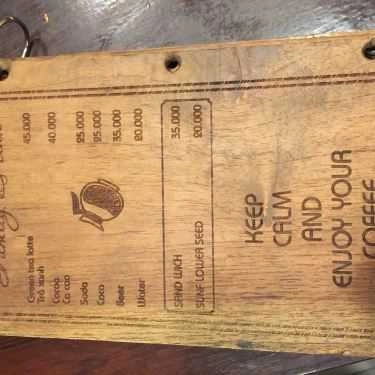 Green tea late 45.000
Trà xanh
Cocoa 40.000
Ca cao
Soda 25.000
Coca 25.000
Beer 35.000
Water 20.000
SAND WICH 35.000
SUNF LOWER SEED 20.000
KEEP
CALM
AND
ENJOY YOUR
COFFEE